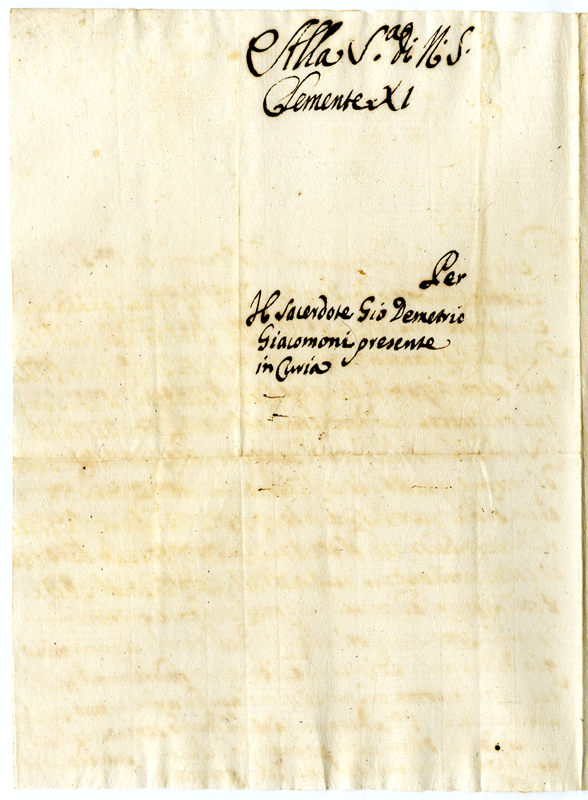 Alla S.ta di N. S.
Clemente XI
Per
Il Sacerdote Gio Demetrio
Giacomoni presente
in Curia